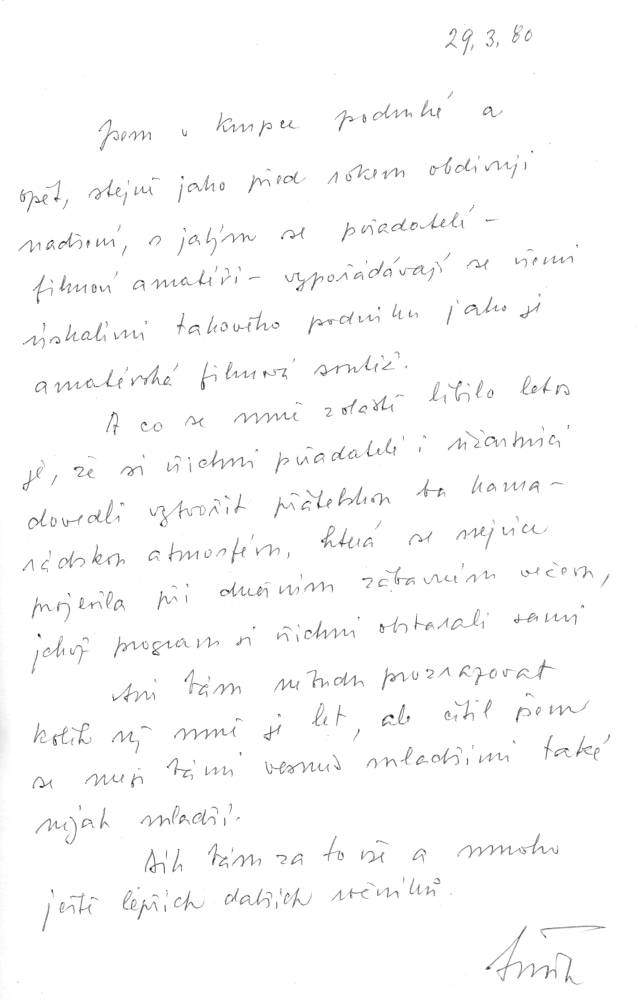 29. 3. 80
Jsem v Krupce podruhé a
opět, stejně jako před rokem obdivuji
nadšení, s jakým se pořadatelé –
filmoví amatéři – vypořádávají se všemi
úskalími takového podniku jako je
amatérská filmová soutěž.
A co se mně zvláště líbilo letos
je, že si všichni pořadatelé i účastníci
dovedli vytvořit přátelskou ba kama-
rádskou atmosféru, která se nejvíce
projevila při dnešním zábavném večeru,
jehož program si všichni obstarali sami
Ani Vám nebudu prozrazovat
kolik už mně je let, ale cítil jsem
se mezi Vámi vesměs mladšími také
nějak mladší.
Dík Vám za to vše a mnoho
ještě lepších dalších ročníků.